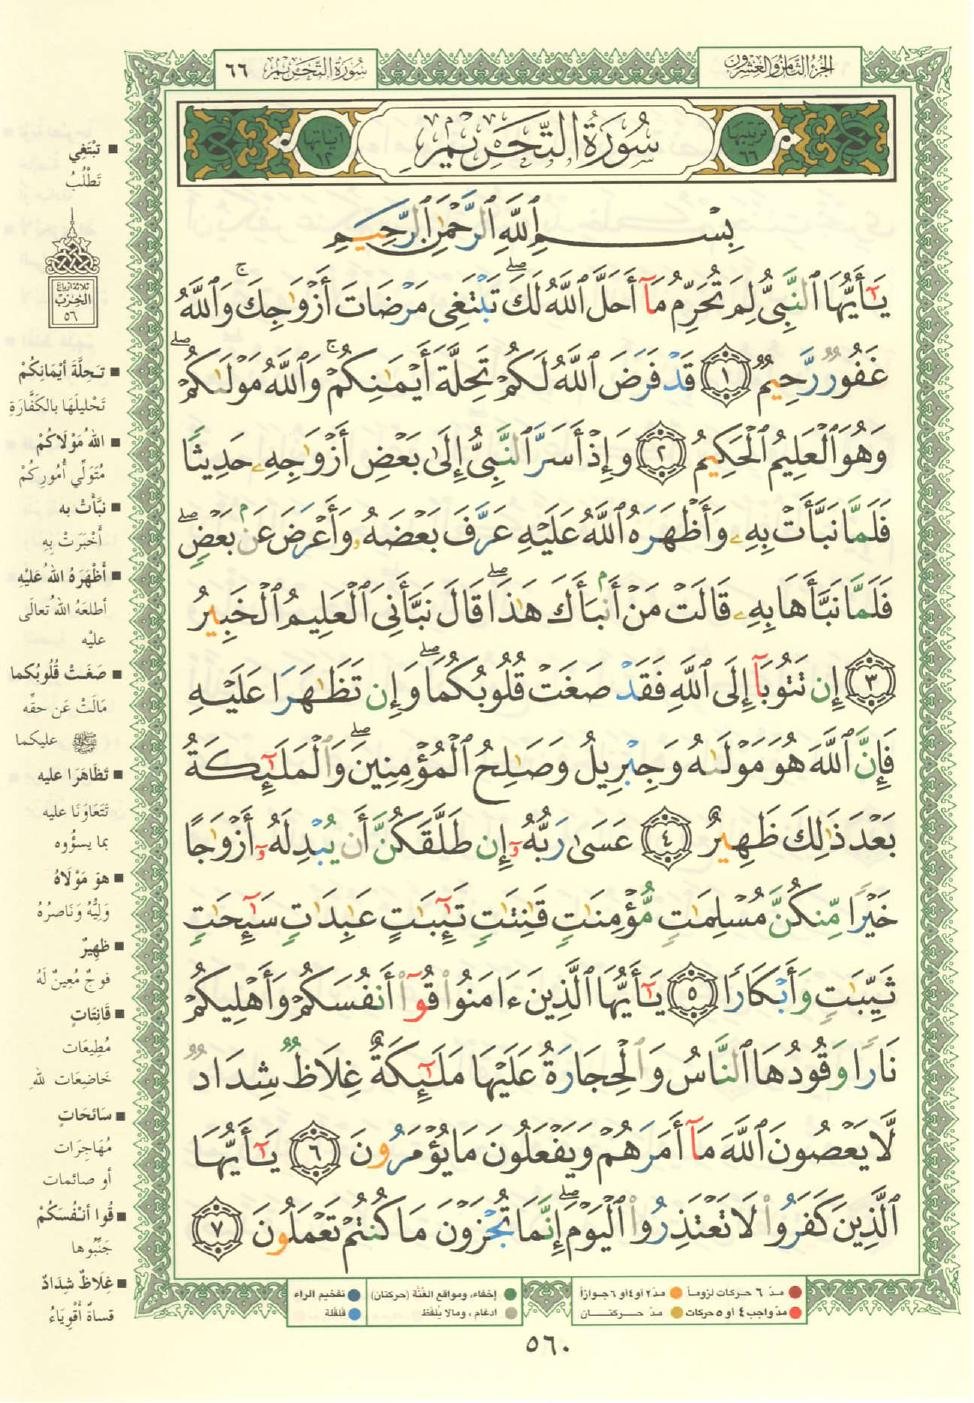 سُورَةُ التَّحْرِيم ٦٦
الجزء الثامن والعشرون
ترتيبها ٦٦
سُورَةُ التَّحْرِيم
آياتها ١٢
بِسْمِ ٱللَّهِ ٱلرَّحْمَٰنِ ٱلرَّحِيمِ
يَٰٓأَيُّهَا ٱلنَّبِىُّ لِمَ تُحَرِّمُ مَآ أَحَلَّ ٱللَّهُ لَكَ ۖ تَبْتَغِى مَرْضَاتَ أَزْوَٰجِكَ ۚ وَٱللَّهُ
غَفُورٌ رَّحِيمٌ ١ قَدْ فَرَضَ ٱللَّهُ لَكُمْ تَحِلَّةَ أَيْمَٰنِكُمْ ۚ وَٱللَّهُ مَوْلَىٰكُمْ ۖ
وَهُوَ ٱلْعَلِيمُ ٱلْحَكِيمُ ٢ وَإِذْ أَسَرَّ ٱلنَّبِىُّ إِلَىٰ بَعْضِ أَزْوَٰجِهِۦ حَدِيثًا
فَلَمَّا نَبَّأَتْ بِهِۦ وَأَظْهَرَهُ ٱللَّهُ عَلَيْهِ عَرَّفَ بَعْضَهُۥ وَأَعْرَضَ عَنۢ بَعْضٍ ۖ
فَلَمَّا نَبَّأَهَا بِهِۦ قَالَتْ مَنْ أَنۢبَأَكَ هَٰذَا ۖ قَالَ نَبَّأَنِىَ ٱلْعَلِيمُ ٱلْخَبِيرُ
٣ إِن تَتُوبَآ إِلَى ٱللَّهِ فَقَدْ صَغَتْ قُلُوبُكُمَا ۖ وَإِن تَظَٰهَرَا عَلَيْهِ
فَإِنَّ ٱللَّهَ هُوَ مَوْلَىٰهُ وَجِبْرِيلُ وَصَٰلِحُ ٱلْمُؤْمِنِينَ ۖ وَٱلْمَلَٰٓئِكَةُ
بَعْدَ ذَٰلِكَ ظَهِيرٌ ٤ عَسَىٰ رَبُّهُۥٓ إِن طَلَّقَكُنَّ أَن يُبْدِلَهُۥٓ أَزْوَٰجًا
خَيْرًا مِّنكُنَّ مُسْلِمَٰتٍ مُّؤْمِنَٰتٍ قَٰنِتَٰتٍ تَٰٓئِبَٰتٍ عَٰبِدَٰتٍ سَٰٓئِحَٰتٍ
ثَيِّبَٰتٍ وَأَبْكَارًا ٥ يَٰٓأَيُّهَا ٱلَّذِينَ ءَامَنُوا۟ قُوٓا۟ أَنفُسَكُمْ وَأَهْلِيكُمْ
نَارًا وَقُودُهَا ٱلنَّاسُ وَٱلْحِجَارَةُ عَلَيْهَا مَلَٰٓئِكَةٌ غِلَاظٌ شِدَادٌ
لَّا يَعْصُونَ ٱللَّهَ مَآ أَمَرَهُمْ وَيَفْعَلُونَ مَا يُؤْمَرُونَ ٦ يَٰٓأَيُّهَا
ٱلَّذِينَ كَفَرُوا۟ لَا تَعْتَذِرُوا۟ ٱلْيَوْمَ ۖ إِنَّمَا تُجْزَوْنَ مَا كُنتُمْ تَعْمَلُونَ ٧
■ تَبْتَغِي
تَطْلُبُ
ثلاثة أرباع
الحزب
٥٦
■ تَحِلَّةَ أيْمَانِكُمْ
تَحْليلَهَا بالكَفَّارَةِ
■ اللهُ مَوْلَاكُمْ
مُتَولِّي أمُورِكُمْ
■ نبَّأتْ به
أخْبَرَتْ بِهِ
■ أظْهَرَهُ اللهُ عَلَيْهِ
أطلعَهُ اللهُ تعالَى
عليْه
■ صَغَتْ قُلُوبُكُما
مَالَتْ عَن حقِّه
ﷺ عليكما
■ تَظَاهَرَا عليه
تَتَعَاونَا عليه
بما يسوُّوه
■ هوَ مَوْلَاهُ
وَلِيُّه وَنَاصرُهُ
■ ظهِيرٌ
فوجٌ مُعِينٌ لَهُ
■ قَانِتَاتٍ
مُطِيعَات
خَاضِعَات للهِ
■ سائحَاتٍ
مُهَاجِرَات
أو صائمات
■ قُوا أنْفُسَكُمْ
جَنِّبُوها
■ غِلَاظٌ شِدَادٌ
قساةٌ أقْوِيَاءُ
مدّ ٦ حركات لزوماً ● مدّ ٢ أو ٤ أو ٦ جوازاً ●
مدّ واجب ٤ أو ٥ حركات ● مدّ حركتان ●
إخفاء، ومواقع الغُنَّة (حركتان) ● تفخيم الراء ●
ادغام، ومالا يُلفَظ ● قلقلة ●
٥٦٠